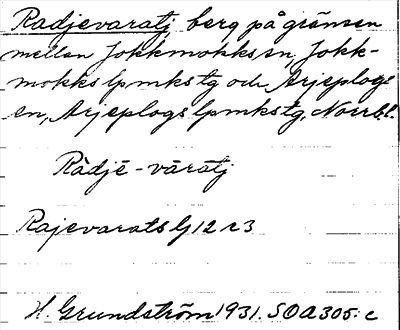 Radjevaratj, berg på gränsen
mellan Jokkmokks sn, Jokk-
mokks lpmkstg och Arjeplogs
sn, Arjeplogs lpmkstg, Norrb.l.
Rādjē-vāratj
Rajevarats G 12 r 3
H. Grundström 1931. SOA 305: c